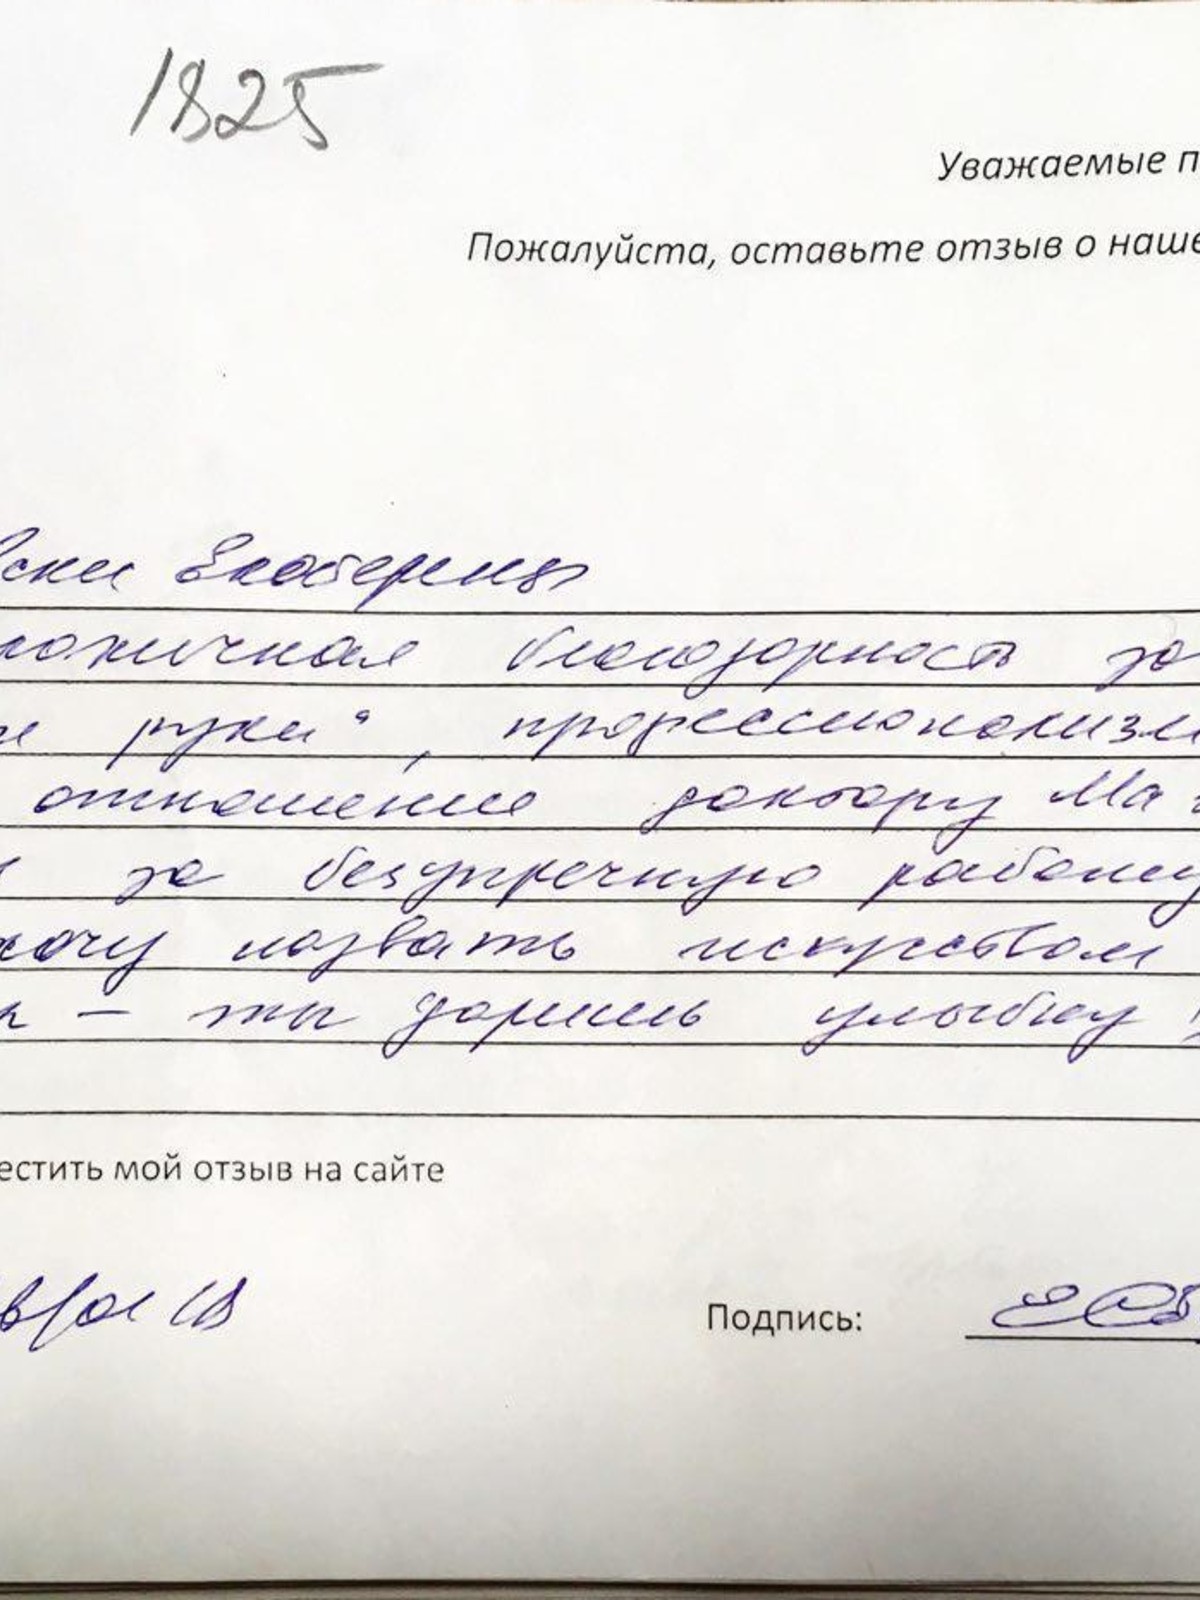 1825
Уважаемые п
Пожалуйста, оставьте отзыв о наше
Екатерина
благодарность за
руки", профессионализм
отношение доктору Ма
за безупречную работу
хочу назвать искусством
– ты даришь улыбку!
естить мой отзыв на сайте
Подпись: